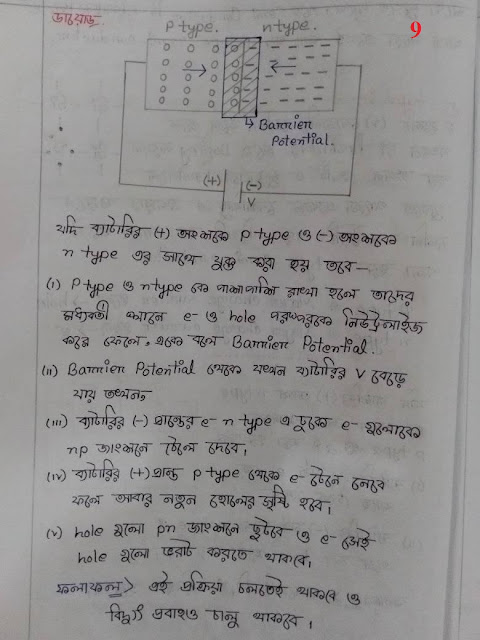 ডায়োড
9
P type. n type.
Barrier
Potential.
(+) (-)
V
যদি ব্যাটারির (+) অংশকে P type ও (-) অংশকে
n type এর সাথে যুক্ত করা হয় তবে—
(i) P type ও n type কে পাশাপাশি রাখা হলে তাদের
মধ্যবর্তী স্থানে e- ও hole পরস্পরকে নিউট্রলাইজ
করে ফেলে, একে বলে Barrier Potential.
(ii) Barrier Potential থেকে যখন ব্যাটারির V বেড়ে
যায় তখন,
(iii) ব্যাটারির (-) প্রান্তের e- n type এ ঢুকে e- গুলোকে
np জাংশনে ঠেলে দেবে।
(iv) ব্যাটারির (+) প্রান্ত P type থেকে e- টেনে নেবে
ফলে আবার নতুন হোলের সৃষ্টি হবে।
(v) hole গুলো pn জাংশনে ছুটবে ও e- সেই
hole গুলো ভরাট করতে থাকবে।
ফলাফল> এই প্রক্রিয়া চলতেই থাকবে ও
বিদ্যুৎ প্রবাহও চালু থাকবে।